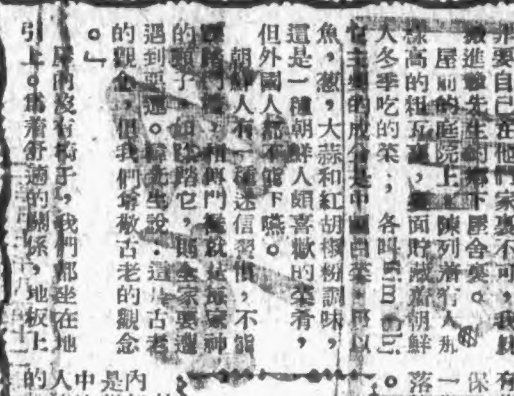 非要自己在他們家裏不可，我就
搬進韓先生的鄉下屋舍裏。
屋前的庭院上，陳列着有人那
樣高的粗瓦甕，裏面貯藏着朝鮮
人冬季吃的菜；各叫
它主要的成分是中國白菜，再以
魚，葱，大蒜和紅胡椒粉調味，
這是一種朝鮮人頗喜歡的菜肴，
但外國人都不能下嚥。
朝鮮人有一種迷信習慣，不能
門檻，相傳門檻就是每家神
的頸子，如踏它，則全家要遭
遇到惡運。韓先生說：這是古老
的觀念，但我們尊敬古老的觀念
。」
屋內沒有椅子，我們都坐在地
引上。爲着舒適的關係，地板上
有
保
一
落
。
內
是
中
人
的